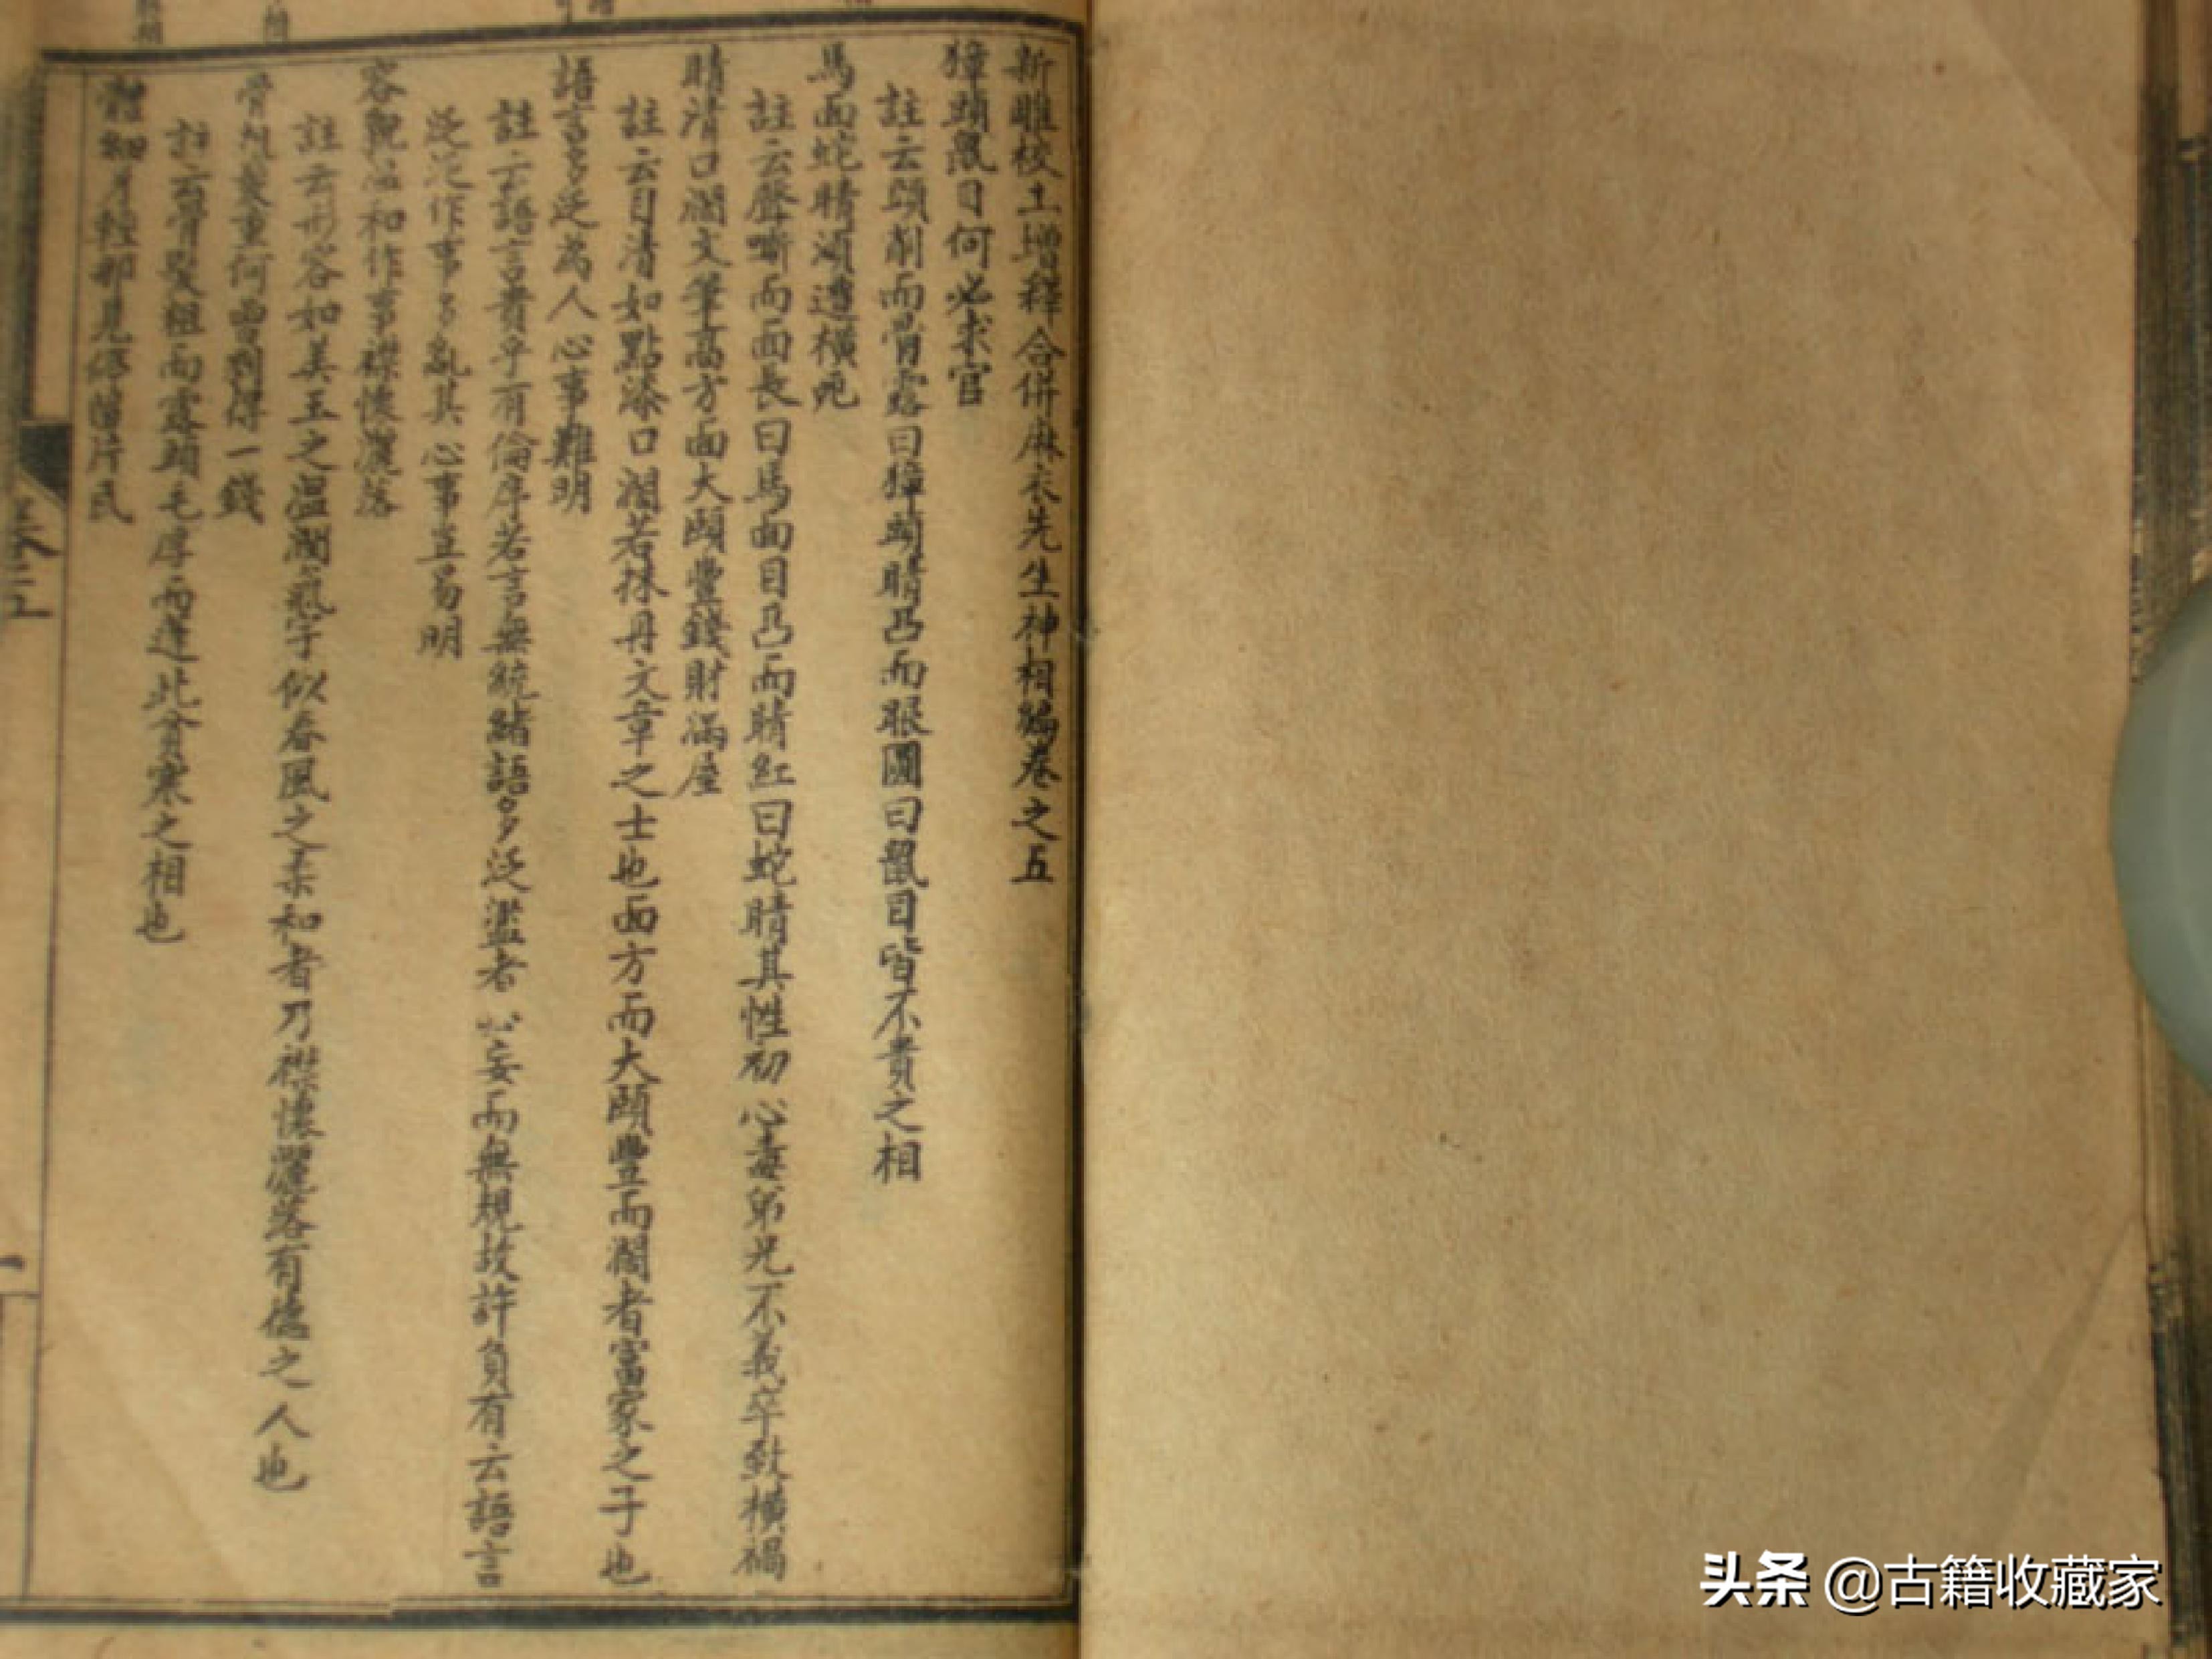 新雕校土增釋合併麻衣先生神相編卷之五
獐頭鼠目何必求官
註云頭削而骨露曰獐頭睛凸而眼圓曰鼠目皆不貴之相
馬面蛇睛須遭橫死
註云聲嘶而面長曰馬面目凸而睛紅曰蛇睛其性初心毒弟兄不義卒致橫禍
睛清口濶文筆高方面大頤豐錢財滿屋
註云目清如點漆口濶若抹丹文章之士也面方而大頤豐而濶者富家之子也
語言多泛為人心事難明
註云語言貴乎有倫序若言無統緒語多泛濫者心妄而無規故許負有云語言
泛泛作事多亂其心事豈易明
容貌溫和作事襟懷灑落
註云形容如美玉之溫潤氣宇似春風之柔和者乃襟懷灑落有德之人也
骨粗髮重何曾剩得一錢
註云骨髮粗而露頭毛厚而逢此貧寒之相也
體細身輕那見停留片瓦
卷之五
一
头条 @古籍收藏家